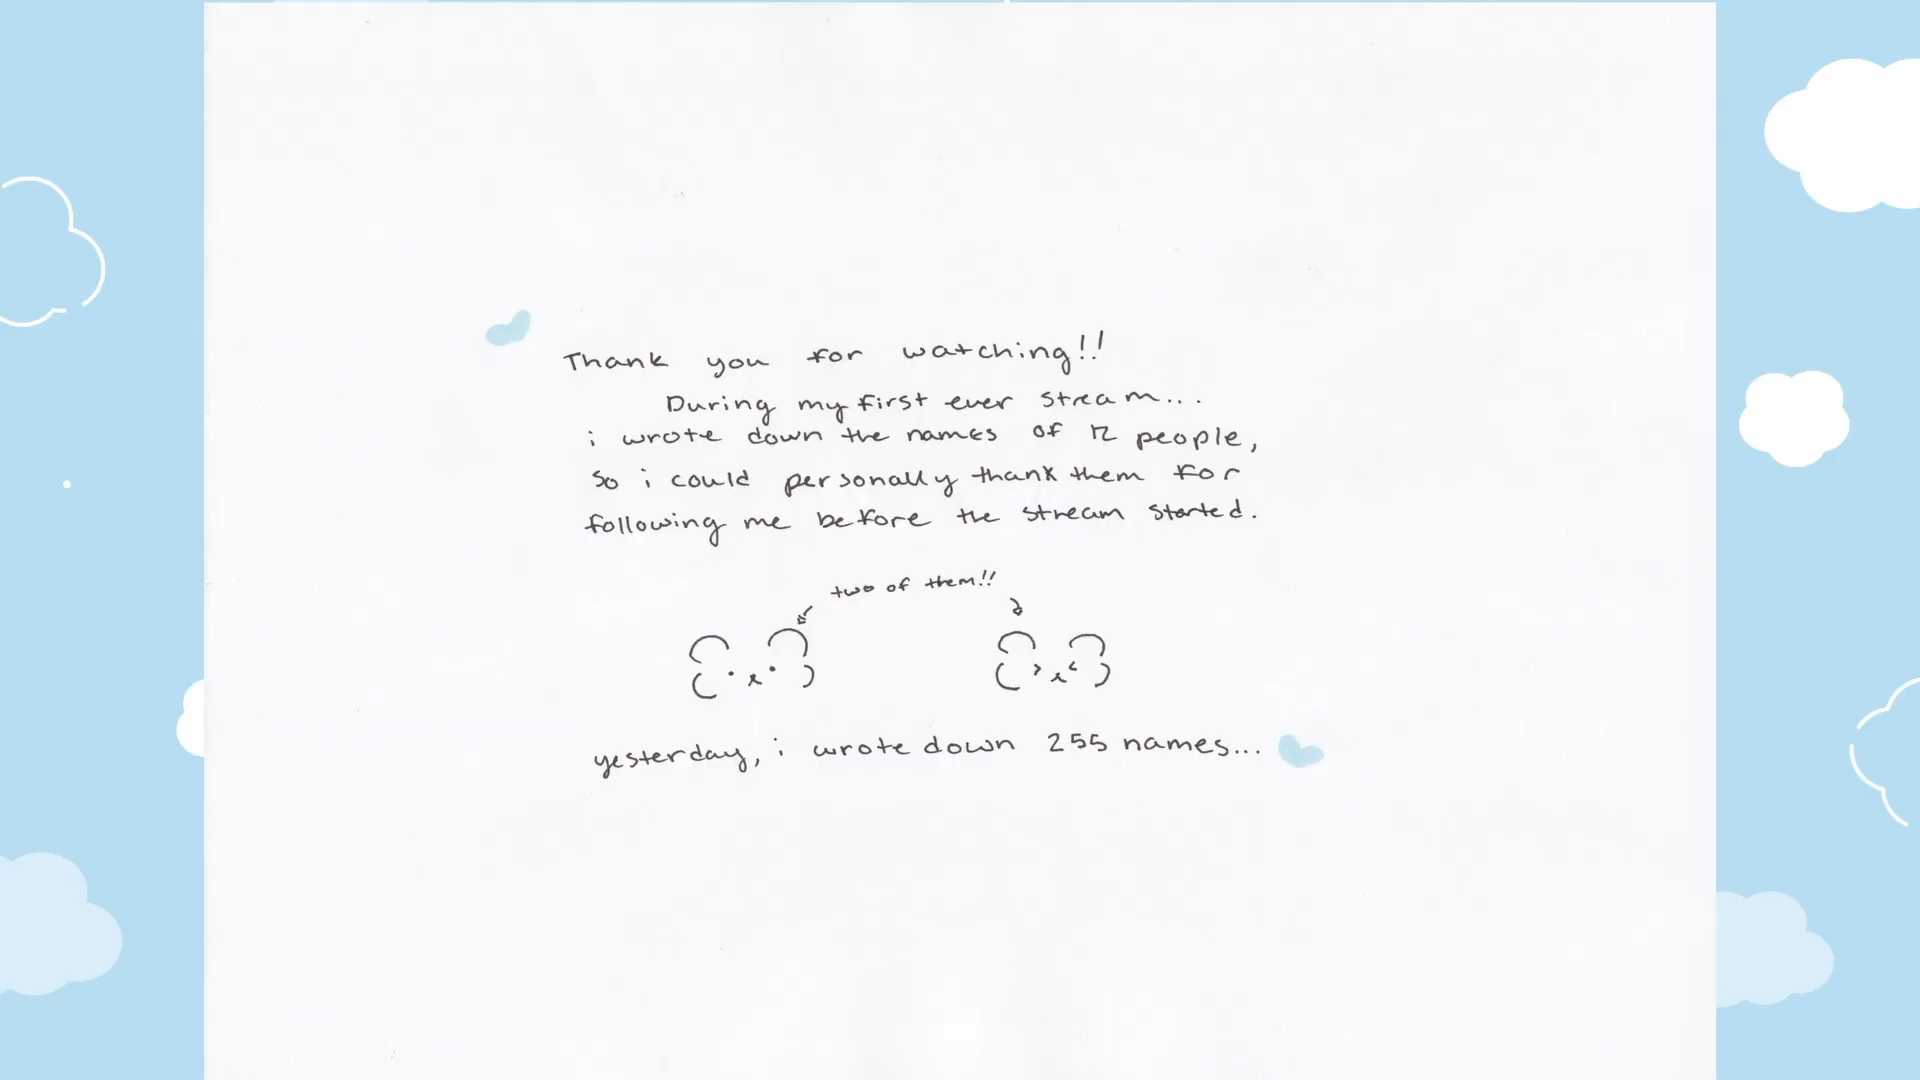 Thank you for watching!!
During my first ever stream...
i wrote down the names of 12 people,
so i could personally thank them for
following me before the stream started.
two of them!!
yesterday, i wrote down 255 names...